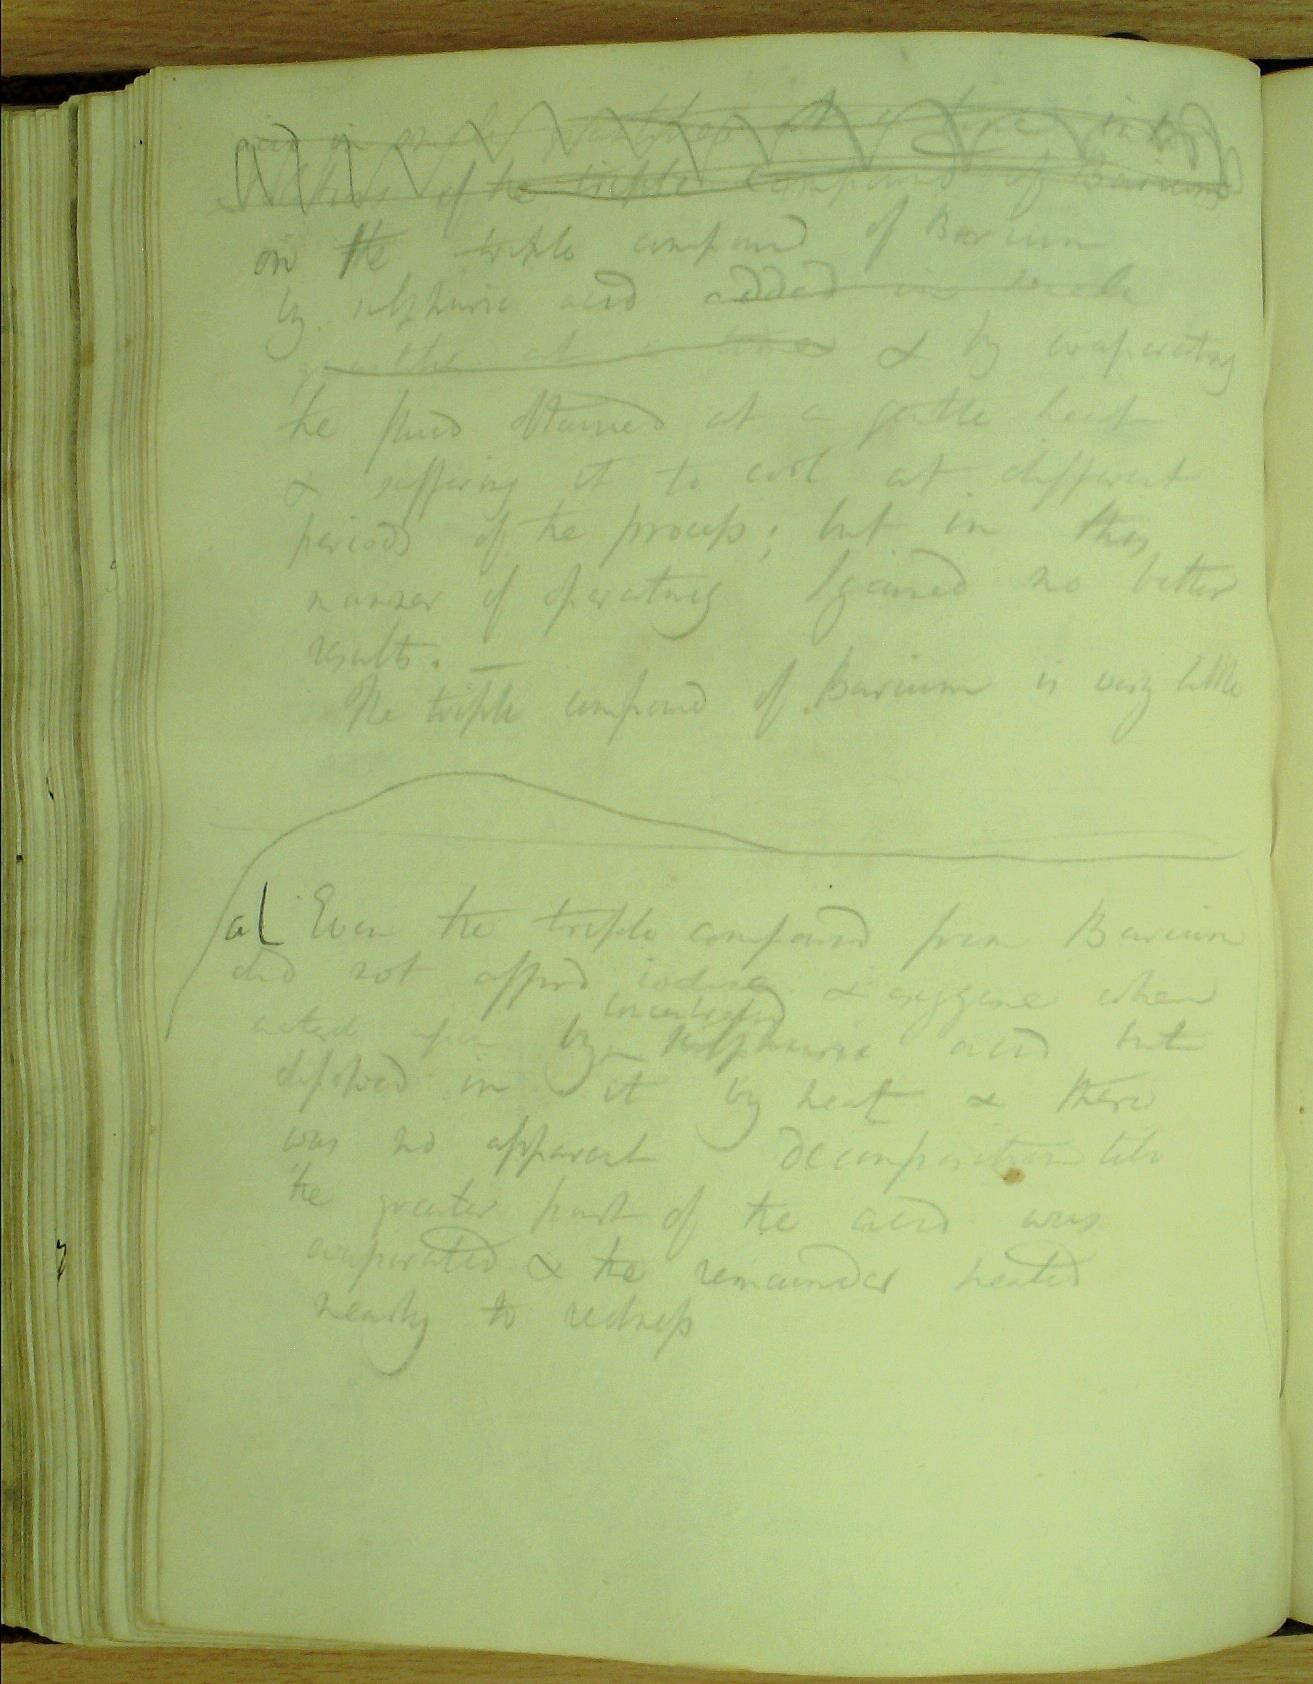 acid in small quantities at a time into
of the triple compound of Barium
on the triple compound of Barium
by sulphuric acid added in small
quantities at a time & by evaporating
the fluid obtained at a gentle heat
& suffering it to cool at different
periods of the process; but in this
manner of operating I gained no better
results. —
The triple compound of Barium is very little
a[ Even the triple compound from Barium
did not afford iodine & oxygene when
concentrated
acted upon by sulphuric acid but
dissolved in it by heat & there
was no apparent decomposition till
the greater part of the acid was
evaporated & the remainder heated
nearly to redness